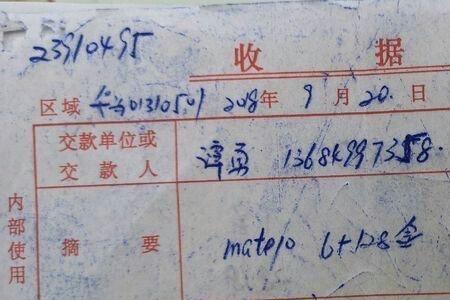 23910495
收 据
区域 千与01310501 2018年 9 月 20. 日
交款单位或
交 款 人
谭勇 13684997358.
内部使用
摘 要
mate10 6+128金